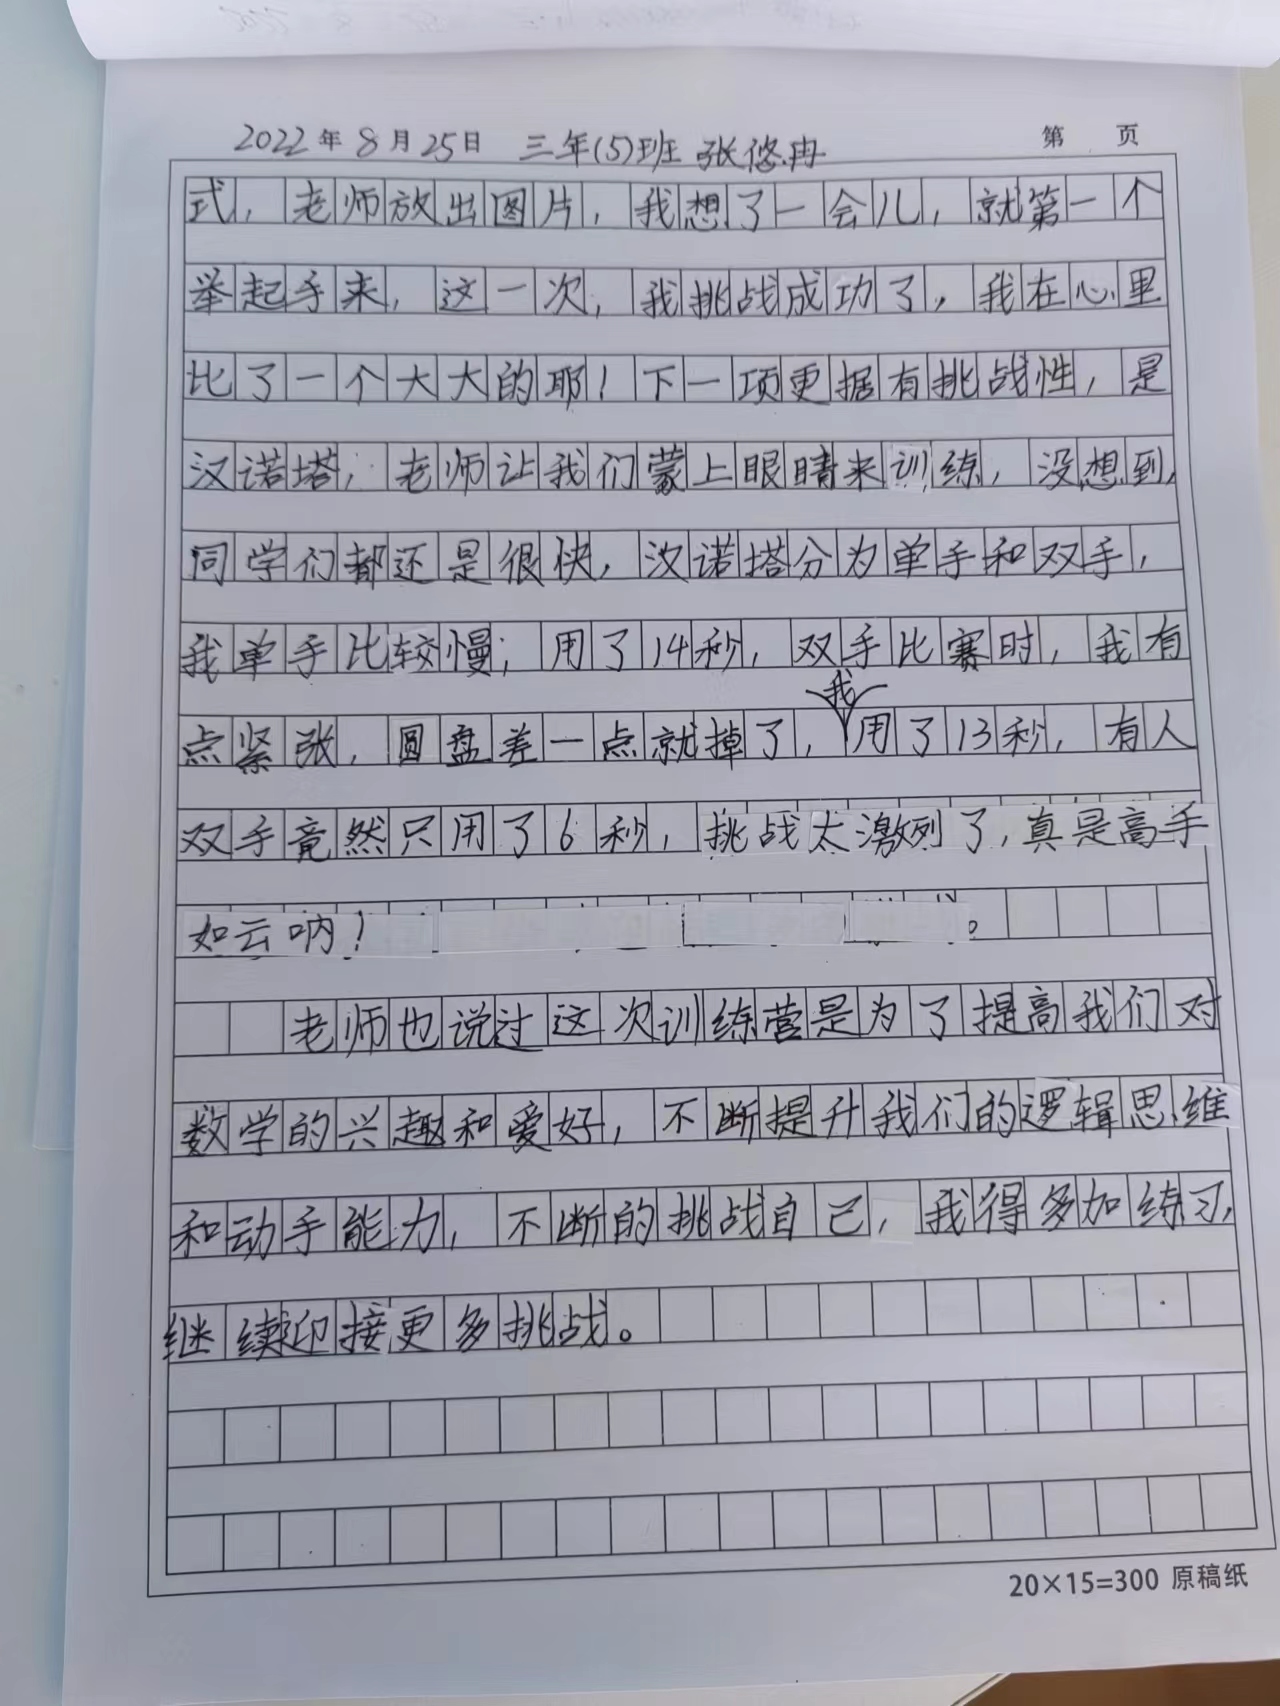 2022年8月25日 三年(5)班 张悠冉 第 页
式，老师放出图片，我想了一会儿，就第一个
举起手来，这一次，我挑战成功了，我在心里
比了一个大大的耶！下一项更据有挑战性，是
汉诺塔，老师让我们蒙上眼睛来训练，没想到，
同学们都还是很快，汉诺塔分为单手和双手，
我单手比较慢；用了14秒，双手比赛时，我有
点紧张，圆盘差一点就掉了，我用了13秒，有人
双手竟然只用了6秒，挑战太激烈了，真是高手
如云呐！
老师也说过这次训练营是为了提高我们对
数学的兴趣和爱好，不断提升我们的逻辑思维
和动手能力，不断的挑战自己，我得多加练习，
继续迎接更多挑战。
20×15=300 原稿纸